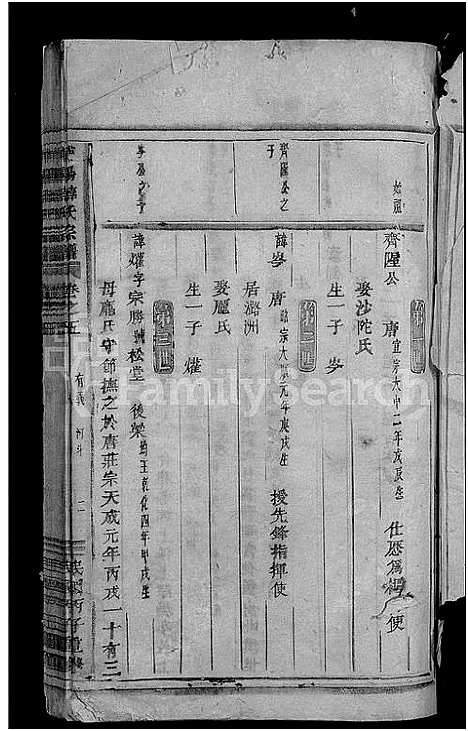 第一世
始祖
齊隆公 唐宣宗大中二年戊辰生 仕歷爲 使
娶沙陀氏
生一子岁
第二世
齊隆公之子
諱岁 唐 宗大順元年庚戌生 授先鋒指揮使
居潞洲
娶龐氏
生一子燿
第三世
之子
諱燿字宗勝號松堂 後梁均王乾化四年甲戌生
母龐氏守節撫之於唐莊宗天成元年丙戌一十有三
氏宗譜
卷之五
有義
二
民國丙子重修
FamilySearch